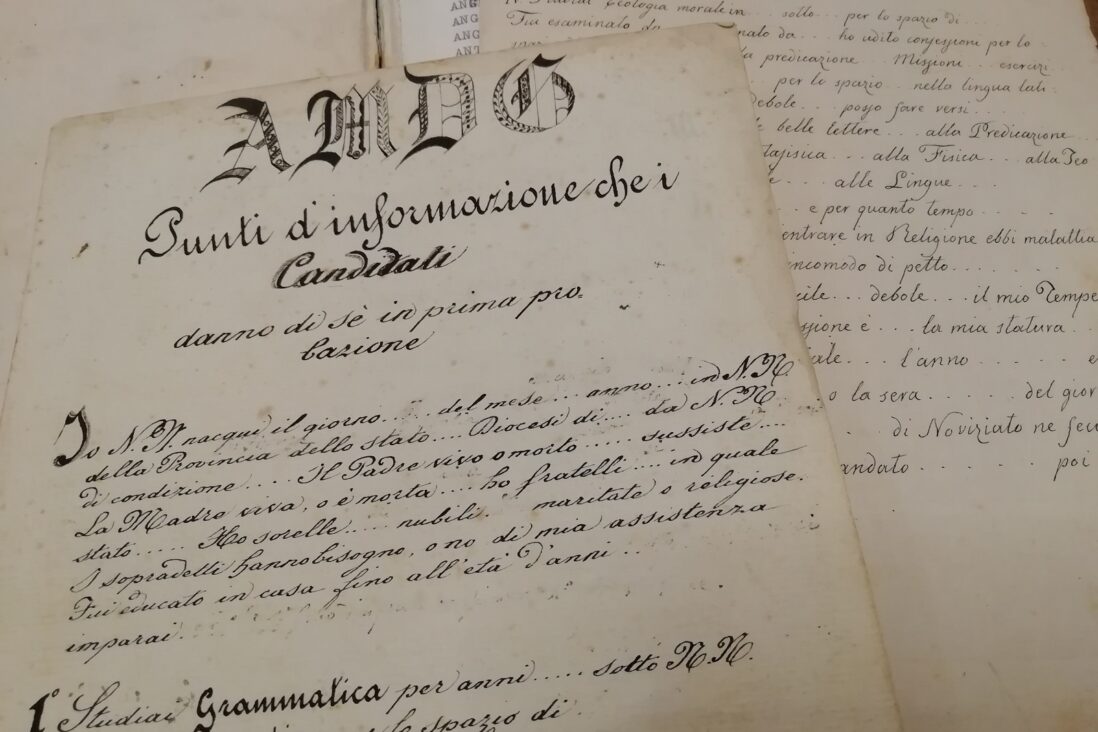 AMDG
Punti d'informazione che i
Candidati
danno di sè in prima pro-
bazione
Io N.N. nacqui il giorno..... del mese... anno.... in N.N.
della Provincia dello stato.... Diocesi di.... da N.N.
di condizione..... Il Padre vivo o morto...... sussiste....
La Madre viva, o è morta.... ho fratelli.... in quale
stato...... Ho sorelle.... nubili. maritate o religiose.
I sopradetti hanno bisogno, o no di mia assistenza
Fui educato in casa fino all'età d'anni...
imparai.
1° Studiai Grammatica per anni..... sotto N.N.
lo spazio di
ANG
ANG
ANG
ANT
Teologia morale in... sotto... per lo spazio di...
Fui esaminato da... nato da... ho udito confessioni per lo
la predicazione... Missioni... esercizi
... per lo spazio.. nella lingua lati-
debole... posso fare versi...
belle lettere... alla Predicazione
tafisica... alla Fisica... alla Teo
... alle Lingue...
... e per quanto tempo.....
entrare in Religione ebbi malattia
incomodo di petto.......
cile... debole... il mio Tempe
ssione è... la mia statura...
ale... l'anno..... e
o la sera...... del gior
di Noviziato ne fec
andato....... poi